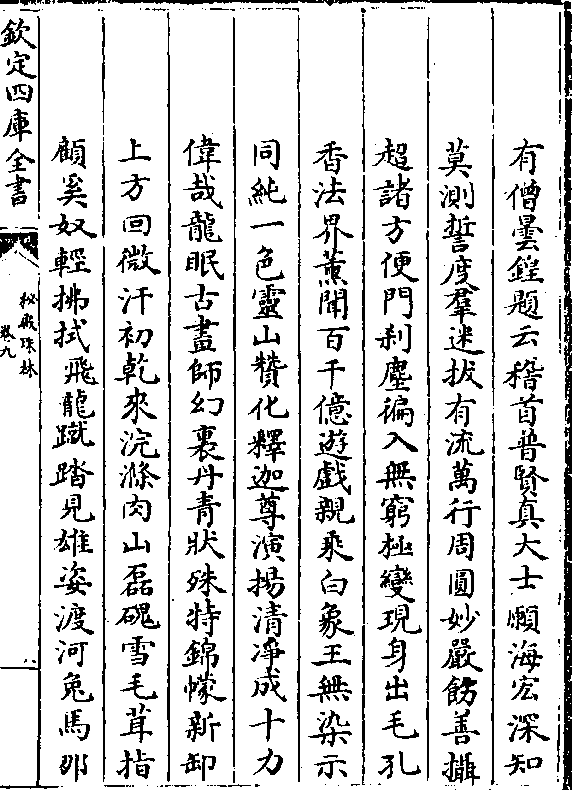 有僧曇鍠題云稽首普賢真大士願海宏深知
莫測誓度羣迷拔有流萬行周圓妙嚴飭善攝
超諸方便門刹塵徧入無窮極變現身出毛孔
香法界薰聞百千億遊戲親乘白象王無染示
同純一色靈山贊化釋迦尊演揚清淨成十力
偉哉龍眠古畫師幻裏丹青狀殊特錦幪新卸
上方回微汗初乾來浣滌肉山磊磈雪毛茸指
顧奚奴輕拂拭飛龍蹴踏見雄姿渡河兔馬那
欽定四庫全書
秘殿珠林
卷九
八